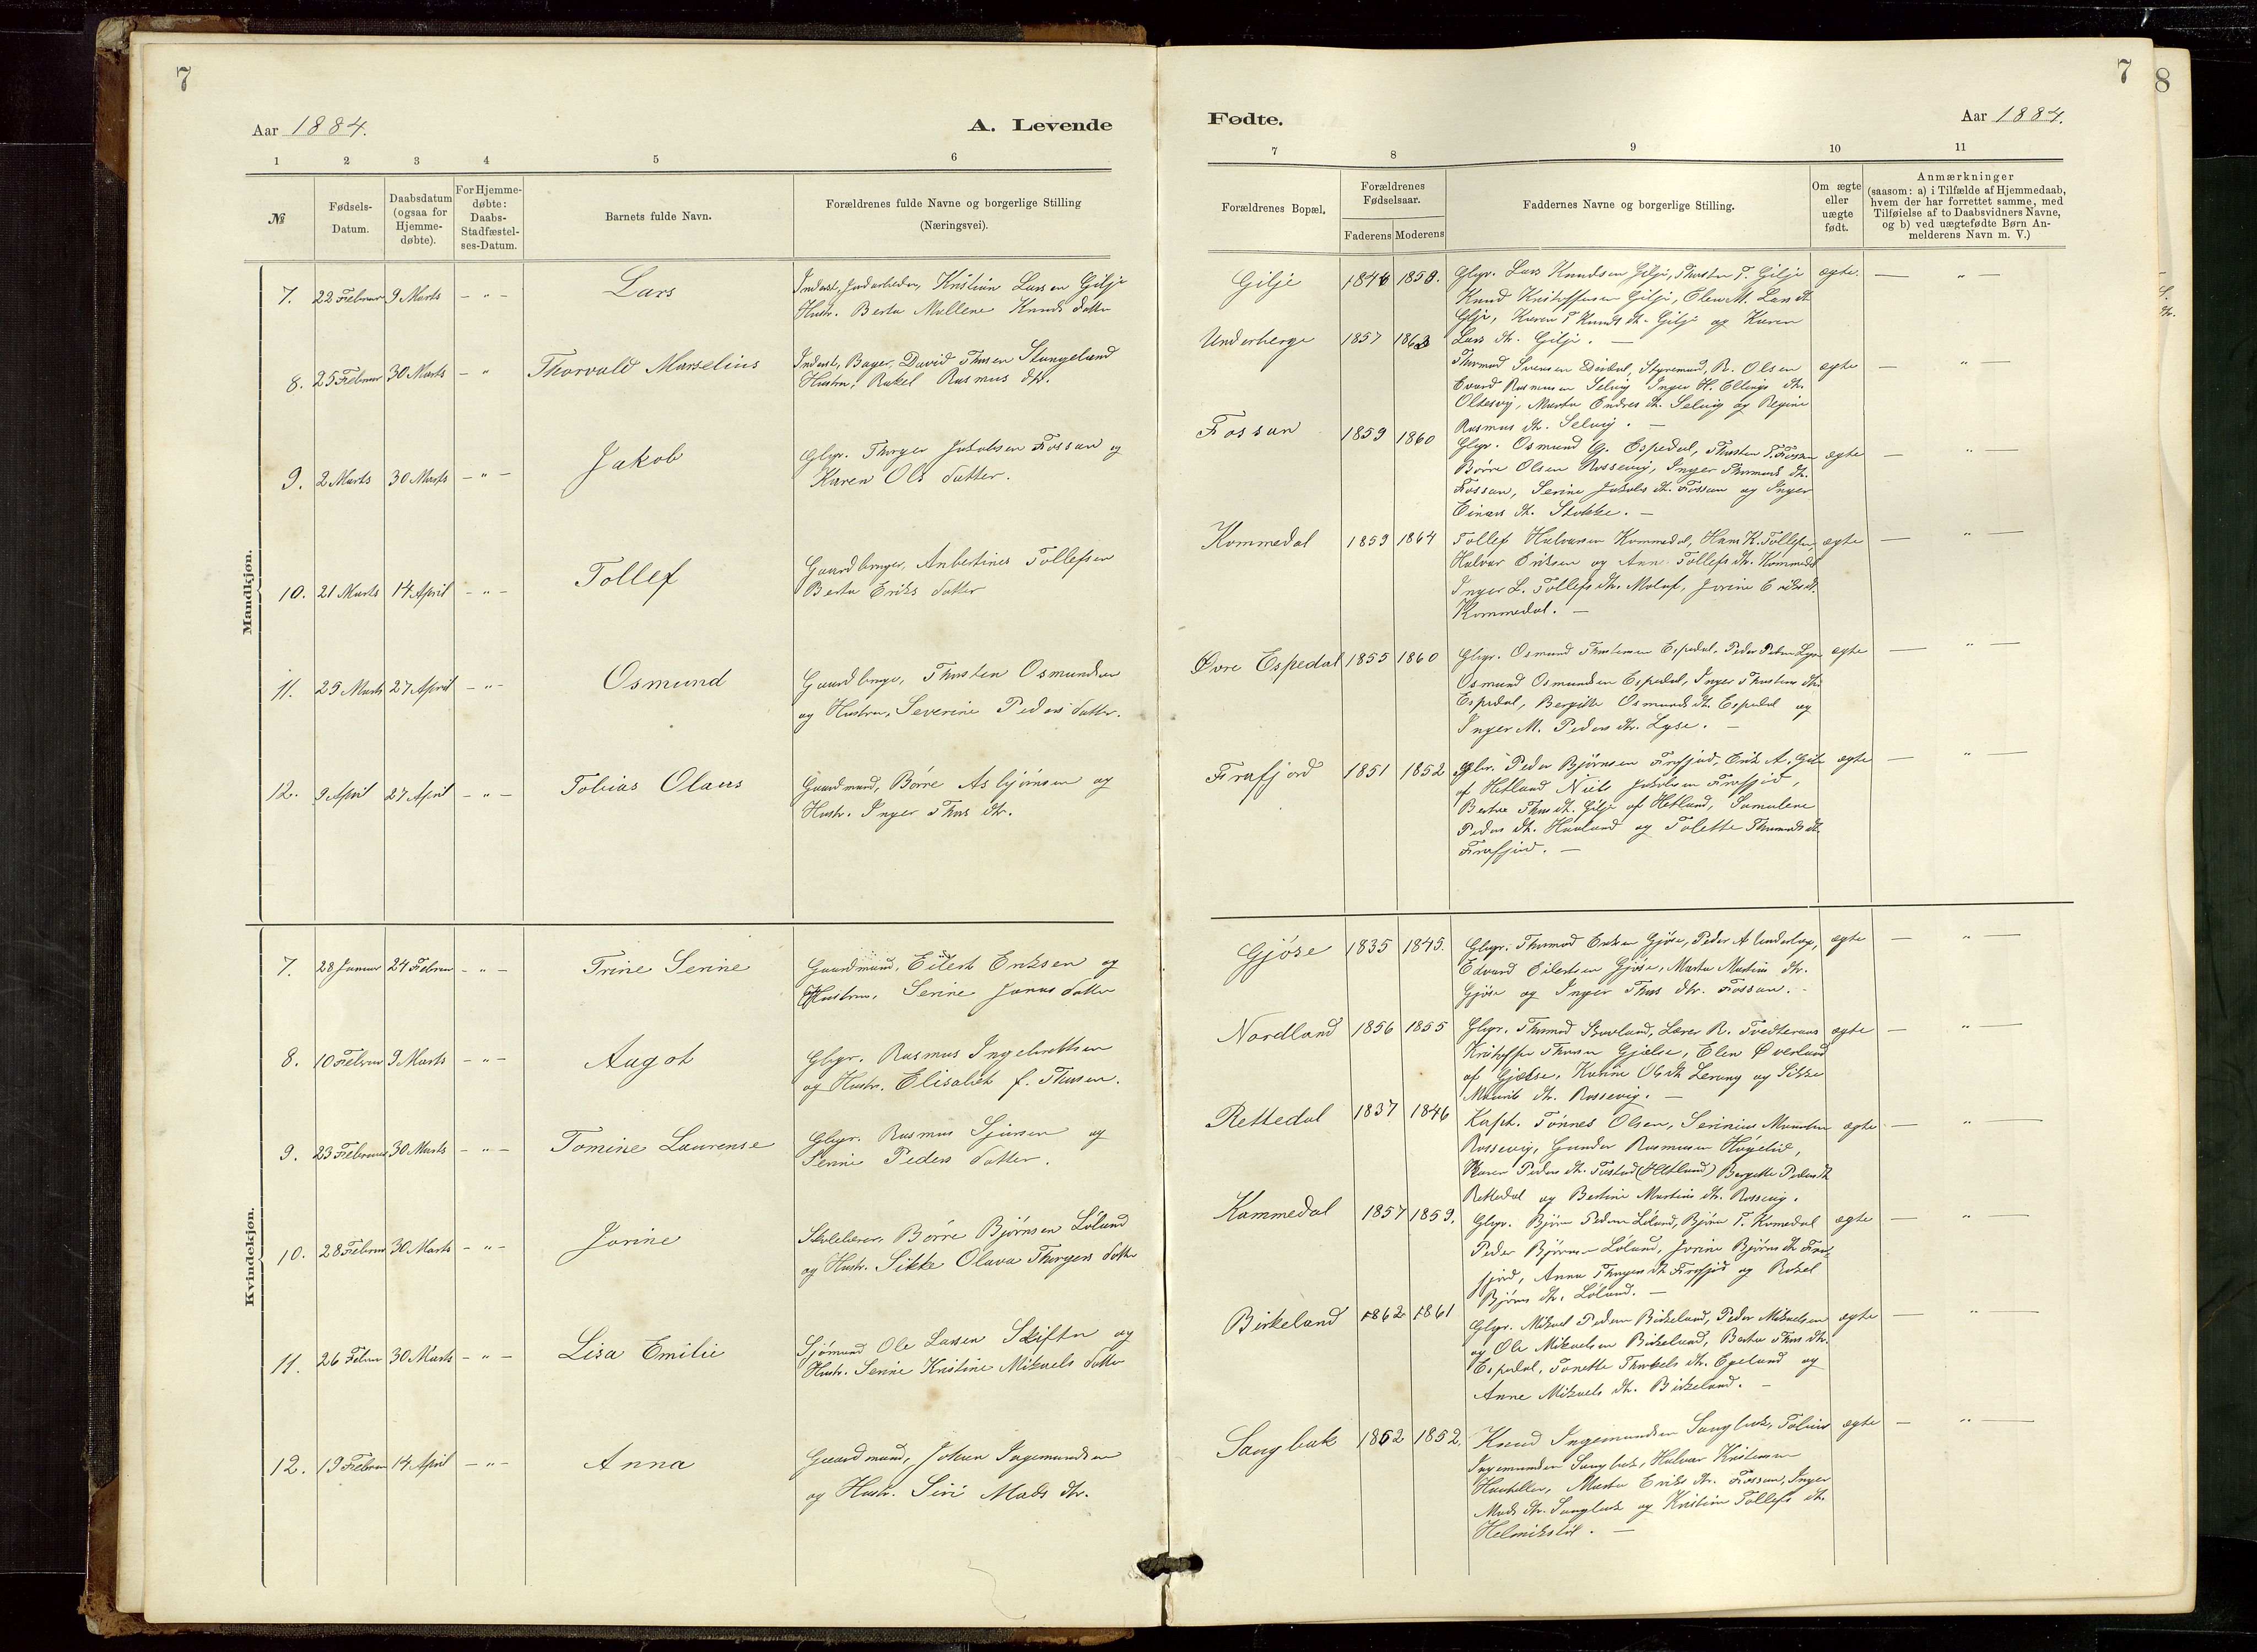 7
Aar 1884.
A. Levende
1 2 3 4 5 6
№
Fødsels-
Datum.
Daabsdatum
(ogsaa for
Hjemme-
døbte).
For Hjemme-
døbte:
Daabs-
Stadfæstel-
ses-Datum.
Barnets fulde Navn.
Forældrenes fulde Navne og borgerlige Stilling
(Næringsvei).
Mandkjøn.
7. 22 Februar 9 Marts - " - Lars
Kristian Larsen Gilje
Hustr. Berta Mallene Knuds datter
8. 25 Februar 30 Marts - " Thorvald Marselius
Inderst, David Thusen Stangeland
Hustru, Rakel Rasmus dtr.
9. 2 Marts 30 Marts - " - Jakob
Gbgr. Thorger Jakobsen Fossan og
Karen Ols datter.
10. 21 Marts 14 April - " - Tollef
Gaardbruger, Anbertines Tollefsen
Berta Eriks datter
11. 25 Marts 27 April - " - Osmund
Gaardbruger, Thosten Osmundsen
og Hustru, Severine Peders datter.
12. 9 April 27 April - " - Tobias Olaus
Gaardmand, Børre Asbjørnsen og
Hustr. Inger Thus dtr.
Kvindekjøn.
7. 28 Januar 24 Februar - " - Trine Serine
Gaardmand, Eilert Eriksen og
Hustru, Serine Jonas datter
8. 10 Februar 9 Marts - " - Aagot
Gbgr. Rasmus Ingebrettsen
og Hustr. Elisabet f. Thusen.
9. 23 Februar 30 Marts - " - Tomine Laurense
Gbgr. Rasmus Sjursen og
Serine Peders datter.
10. 28 Februar 30 Marts - " - Jorine
Skolelærer, Børre Bjørnsen Løland
og Hustr. Sikke Olava Thorgers datter
11. 26 Febru 30 Marts - " - Lisa Emilie
Sjømand Ole Larsen Skiftun og
Hustr. Serine Kristine Mikaels datter
12. 19 Februar 14 April - " - Anna
Gaardmand, Johan Ingemundsen
og Hustr. Siri Mads dtr.
7
8
Fødte.
Aar 1884.
7 8 9 10 11
Forældrenes Bopæl.
Forældrenes
Fødselsaar.
Faderens Moderens
Faddernes Navne og borgerlige Stilling.
Om ægte
eller
uægte
født.
Anmærkninger
(saasom: a) i Tilfælde af Hjemmedaab,
hvem der har forrettet samme, med
Tilføielse af to Daabsvidners Navne,
og b) ved uægtefødte Børn An-
melderens Navn m. V.)
Gilje 1846 1858. Gbgr. Lars Knudsen Gilje, Thosten T. Gilje ægte. — " —
Knud Kristoffersen Gilje, Elen M. Lars dt
Gilje, Karen T Knuds dt. Gilje og Karen
Lars dt. Gilje. —
Underberge 1857 1863
Thormod Svensen Styremand, R. Olsen ægte — " —
Evard Rasmusen Selvig Inger H. Ellings dt.
Oltesvig, Marta Endres dt. Selvig og Regine
Rasmus dt. Selvig. —
Fossan 1859 1860
Gbgr. Osmund G. Espedal, Thosten T. Fossan ægte — " —
Børre Olsen Rossevig, Inger Thormods dt.
Fossan, Serine Jakobs dt. Fossan og Inger
Einars dt. Stokke. —
Kommedal 1859 1864 Tollef Halvorsen Kommedal, Hans K. Tollefsen, ægte — " —
Halvor Eriksen og Anne Tollefs dt. Kommedal
Inger L. Tollefs dtr. Jorine Eriks dt.
Kommedal. —
Øvre Espedal 1855 1860 Gbgr. Osmund Thostensen Espedal, Peder Lyse ægte — " —
Osmund Osmundsen Espedal, Inger Thostens dtr
Espedal, Bergitte Osmunds dt. Espedal og
Inger M. Peders dtr. Lyse. —
Frafjord 1851 1852 Gbr. Peder Bjørnsen Frafjord, Erik A. Gilje ægte — " —
af Hetland Niels Jakobsen Frafjord,
Bertha Thus dt. Gilje af Hetland, Samalene
Peders dt. Haaland og Tolette Thormods dt
Frafjord. —
Gjøse 1835 1845. Gbgr. Thormod Eriksen Gjøse, Peder A ægte — " —
Edvard Eilertsen Gjøse, Marta Martins dtr.
Gjøse og Inger Thus dtr. Fossan. -
Nordland 1856 1855 Gbgr. Thormod Lærer R. Tvedteraas ægte — " —
Kristoffer Thusen Gjelse, Elen Øverland
af Gjelse, Karine Ols dt Lerang og Sikke
dt. Rossevig. —
Rettedal 1837 1846 Kapt. Tønnes Olsen, Serinius ægte - " —
Rossevig, Gunder Rasmusen Høgelid,
Karen Peders dt. (Hetland) Bergitte Peders dt
Rettedal og Bertine Martins dt. Rossevig.
Kommedal 1857 1859. Gbgr. Bjørn Pedersen Løland, Bjørn T. Komedal ægte — " —
Peder Bjørnsen Løland, Jorine Bjørns dt Fra-
fjord, Anna Thorgers dt Frafjord og Rakel
Bjørns dt. Løland. —
Birkeland 1862 1861 Gbgr. Mikael Pedersen Birkeland, Peder Mikaelsen ægte — " —
og Ole Mikaelsen Birkeland, Berta Thus dtr.
Espedal, Tonette Thorkels dt. Egeland og
Anne Mikaels dt. Birkeland. —
Sangbak 1862 1852. Knud Ingemundsen Sangbak, Tobias ægte — " —
Ingemundsen Sangbak, Halvor Kristensen
Marta Eriks dt. Fossan, Inger
Mads dtr. Sangbak og Kristine Tollefs dt.
Helmikstøl. —